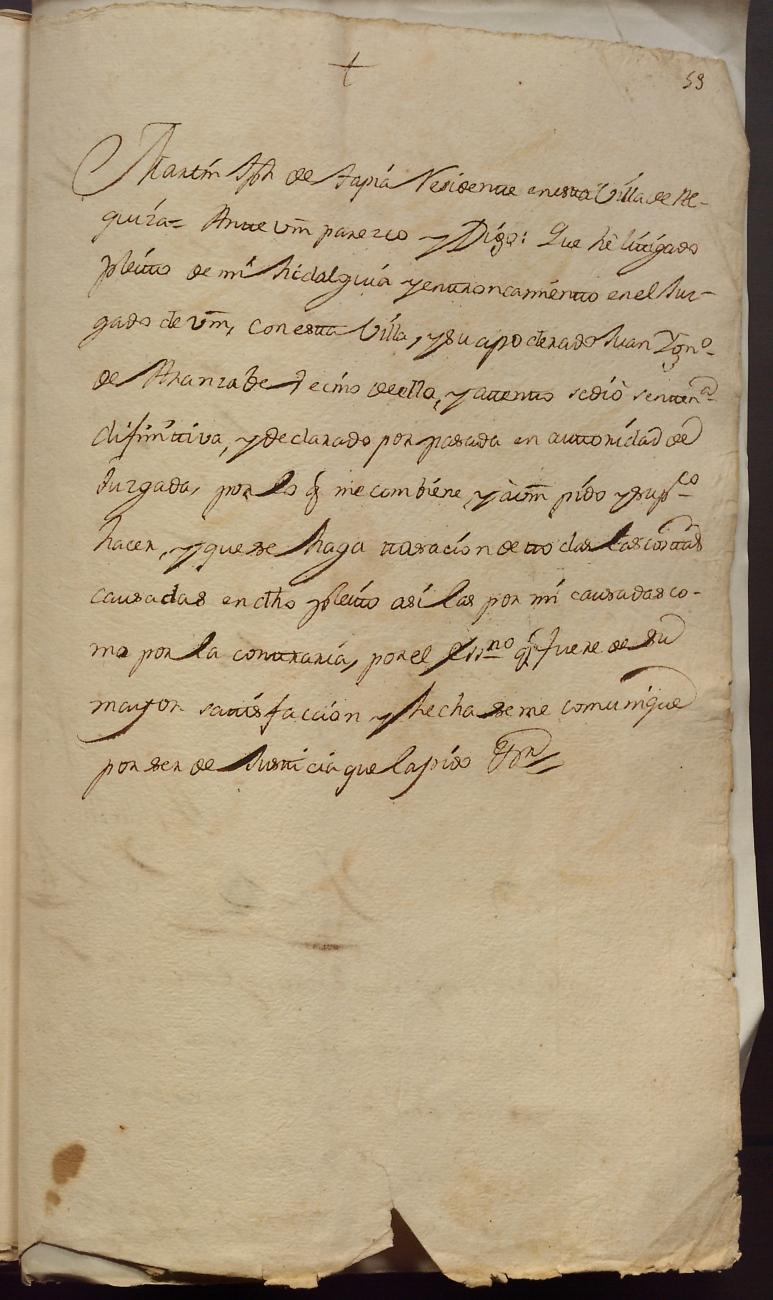 †
59
Martin Jph de Tapia Residente en esta Villa de Se-
gura= Ante Vm parezco y Digo: Que hè litigado
pleito de mi hidalguia y entroncamiento en el Juz-
gado de Vm, con esta Villa, y su apoderado Juan Ygno.
de Aranzabe Vecino de ella, y atento se diò senten.a
difinitiva, y declarado por pasada en autoridad de
Juzgada, por lo q me combiene, y à Vm pido y supco
hacer, y que se haga tasacion de todas las costas
causadas en dho pleito asi las por mi causadas co-
mo por la contraria, por el Essno q fuere de su
mayor satisfaccion y hecha se me comunique
por ser de Justicia que la pido